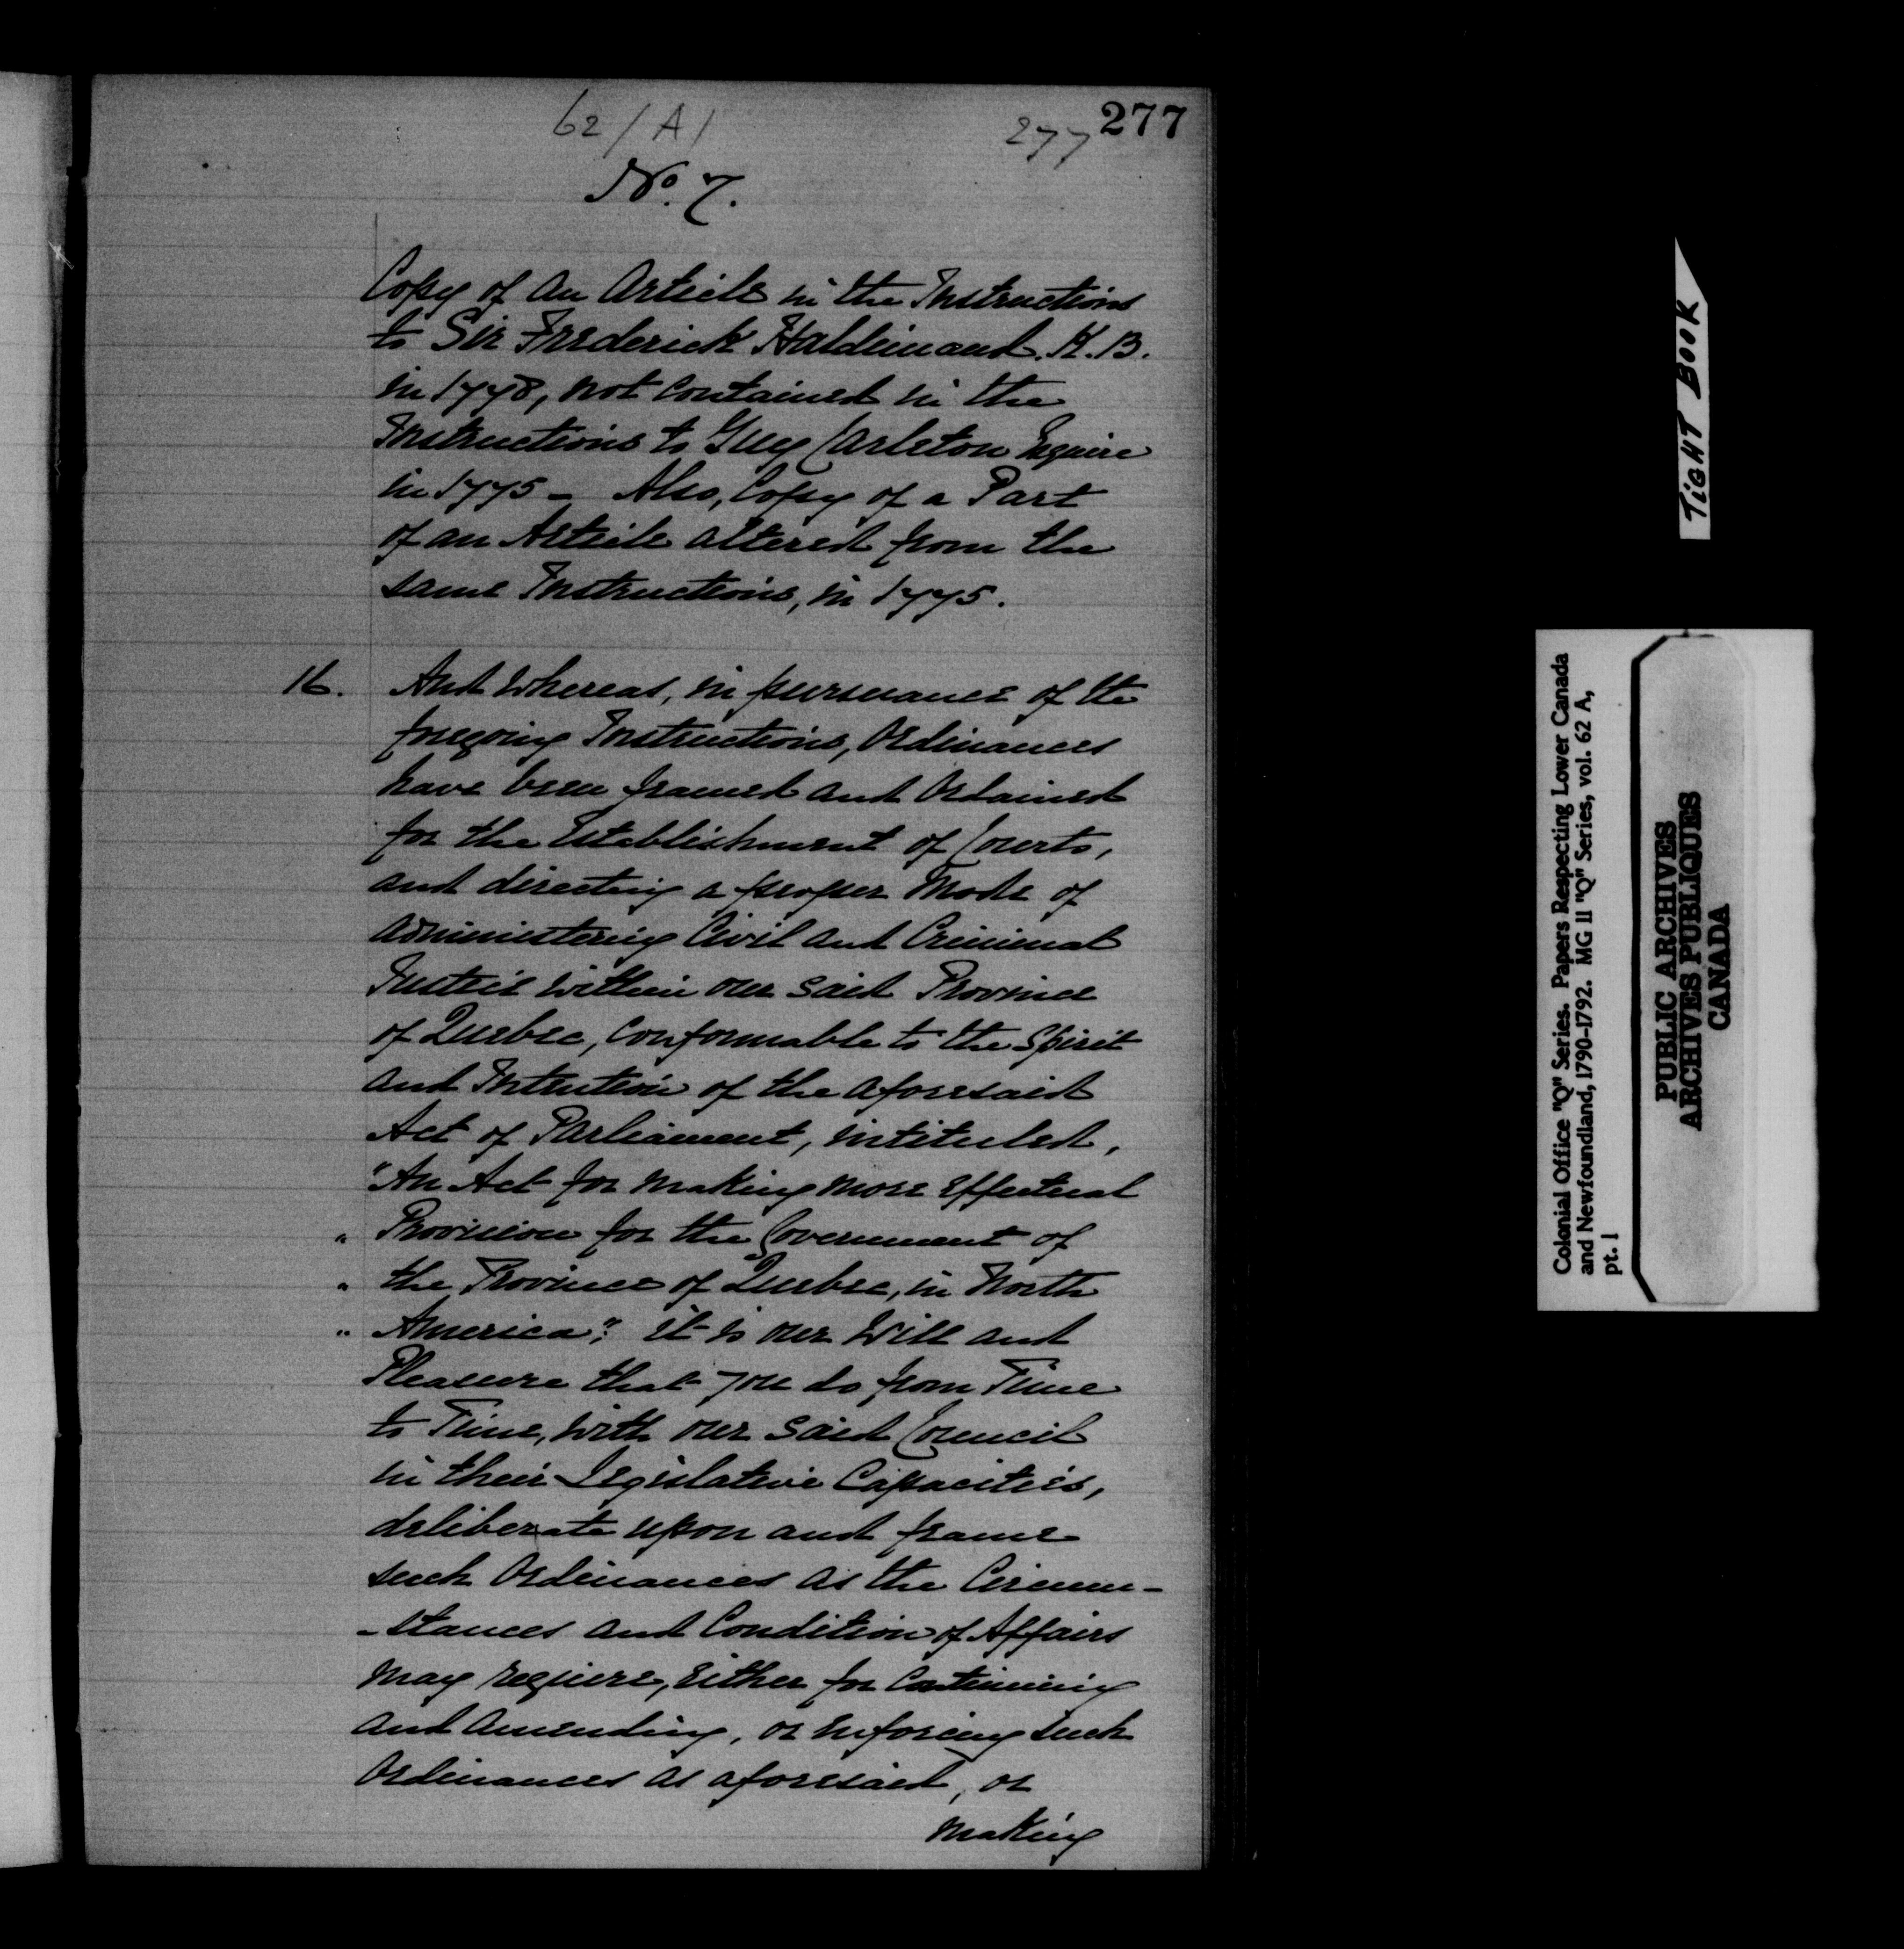 62/A/
277 277
No. 7.
Copy of an Article in the Instructions
to Sir Frederick Haldimand. K.B.
in 1778, not contained in the
Instructions to Guy Carleton Esquire
in 1775 - Also, Copy of a Part
of an Article altered from the
same Instructions, in 1775.
16. And whereas, in pursuance of the
foregoing Instructions, Ordinances
have been framed and Ordained
for the Establishment of Courts,
and directing a proper Mode of
administering Civil and Criminal
Justice within our said Province
of Quebec, conformable to the Spirit
and Intention of the aforesaid
Act of Parliament, intituled,
"An Act for making more effectual
" Provision for the Government of
" the Province of Quebec, in North
" America"; it is our Will and
Pleasure that you do from Time
to Time, with our said Council
in their Legislative Capacities,
deliberate upon and frame
such Ordinances as the Circum-
-stances and Condition of Affairs
may require, either for Continuing
and amending, or enforcing such
Ordinances as aforesaid, or
making
TIGHT BOOK
Colonial Office "Q" Series. Papers Respecting Lower Canada
and Newfoundland, 1790-1792. MG 11 "Q" Series, vol. 62 A,
pt. 1
PUBLIC ARCHIVES
ARCHIVES PUBLIQUES
CANADA